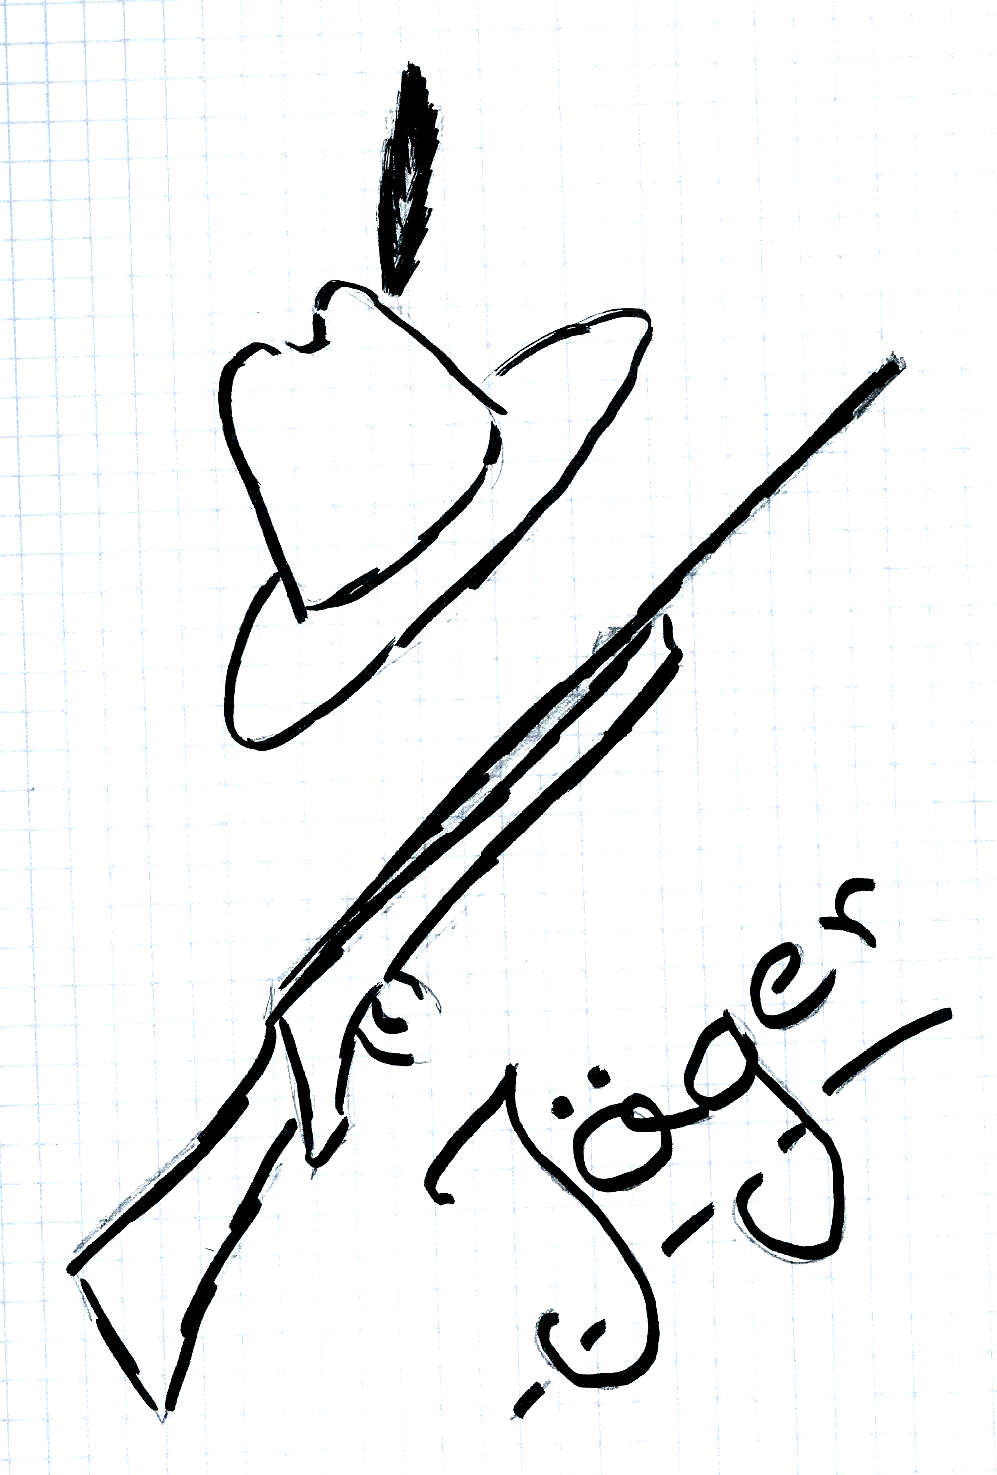 Jäger